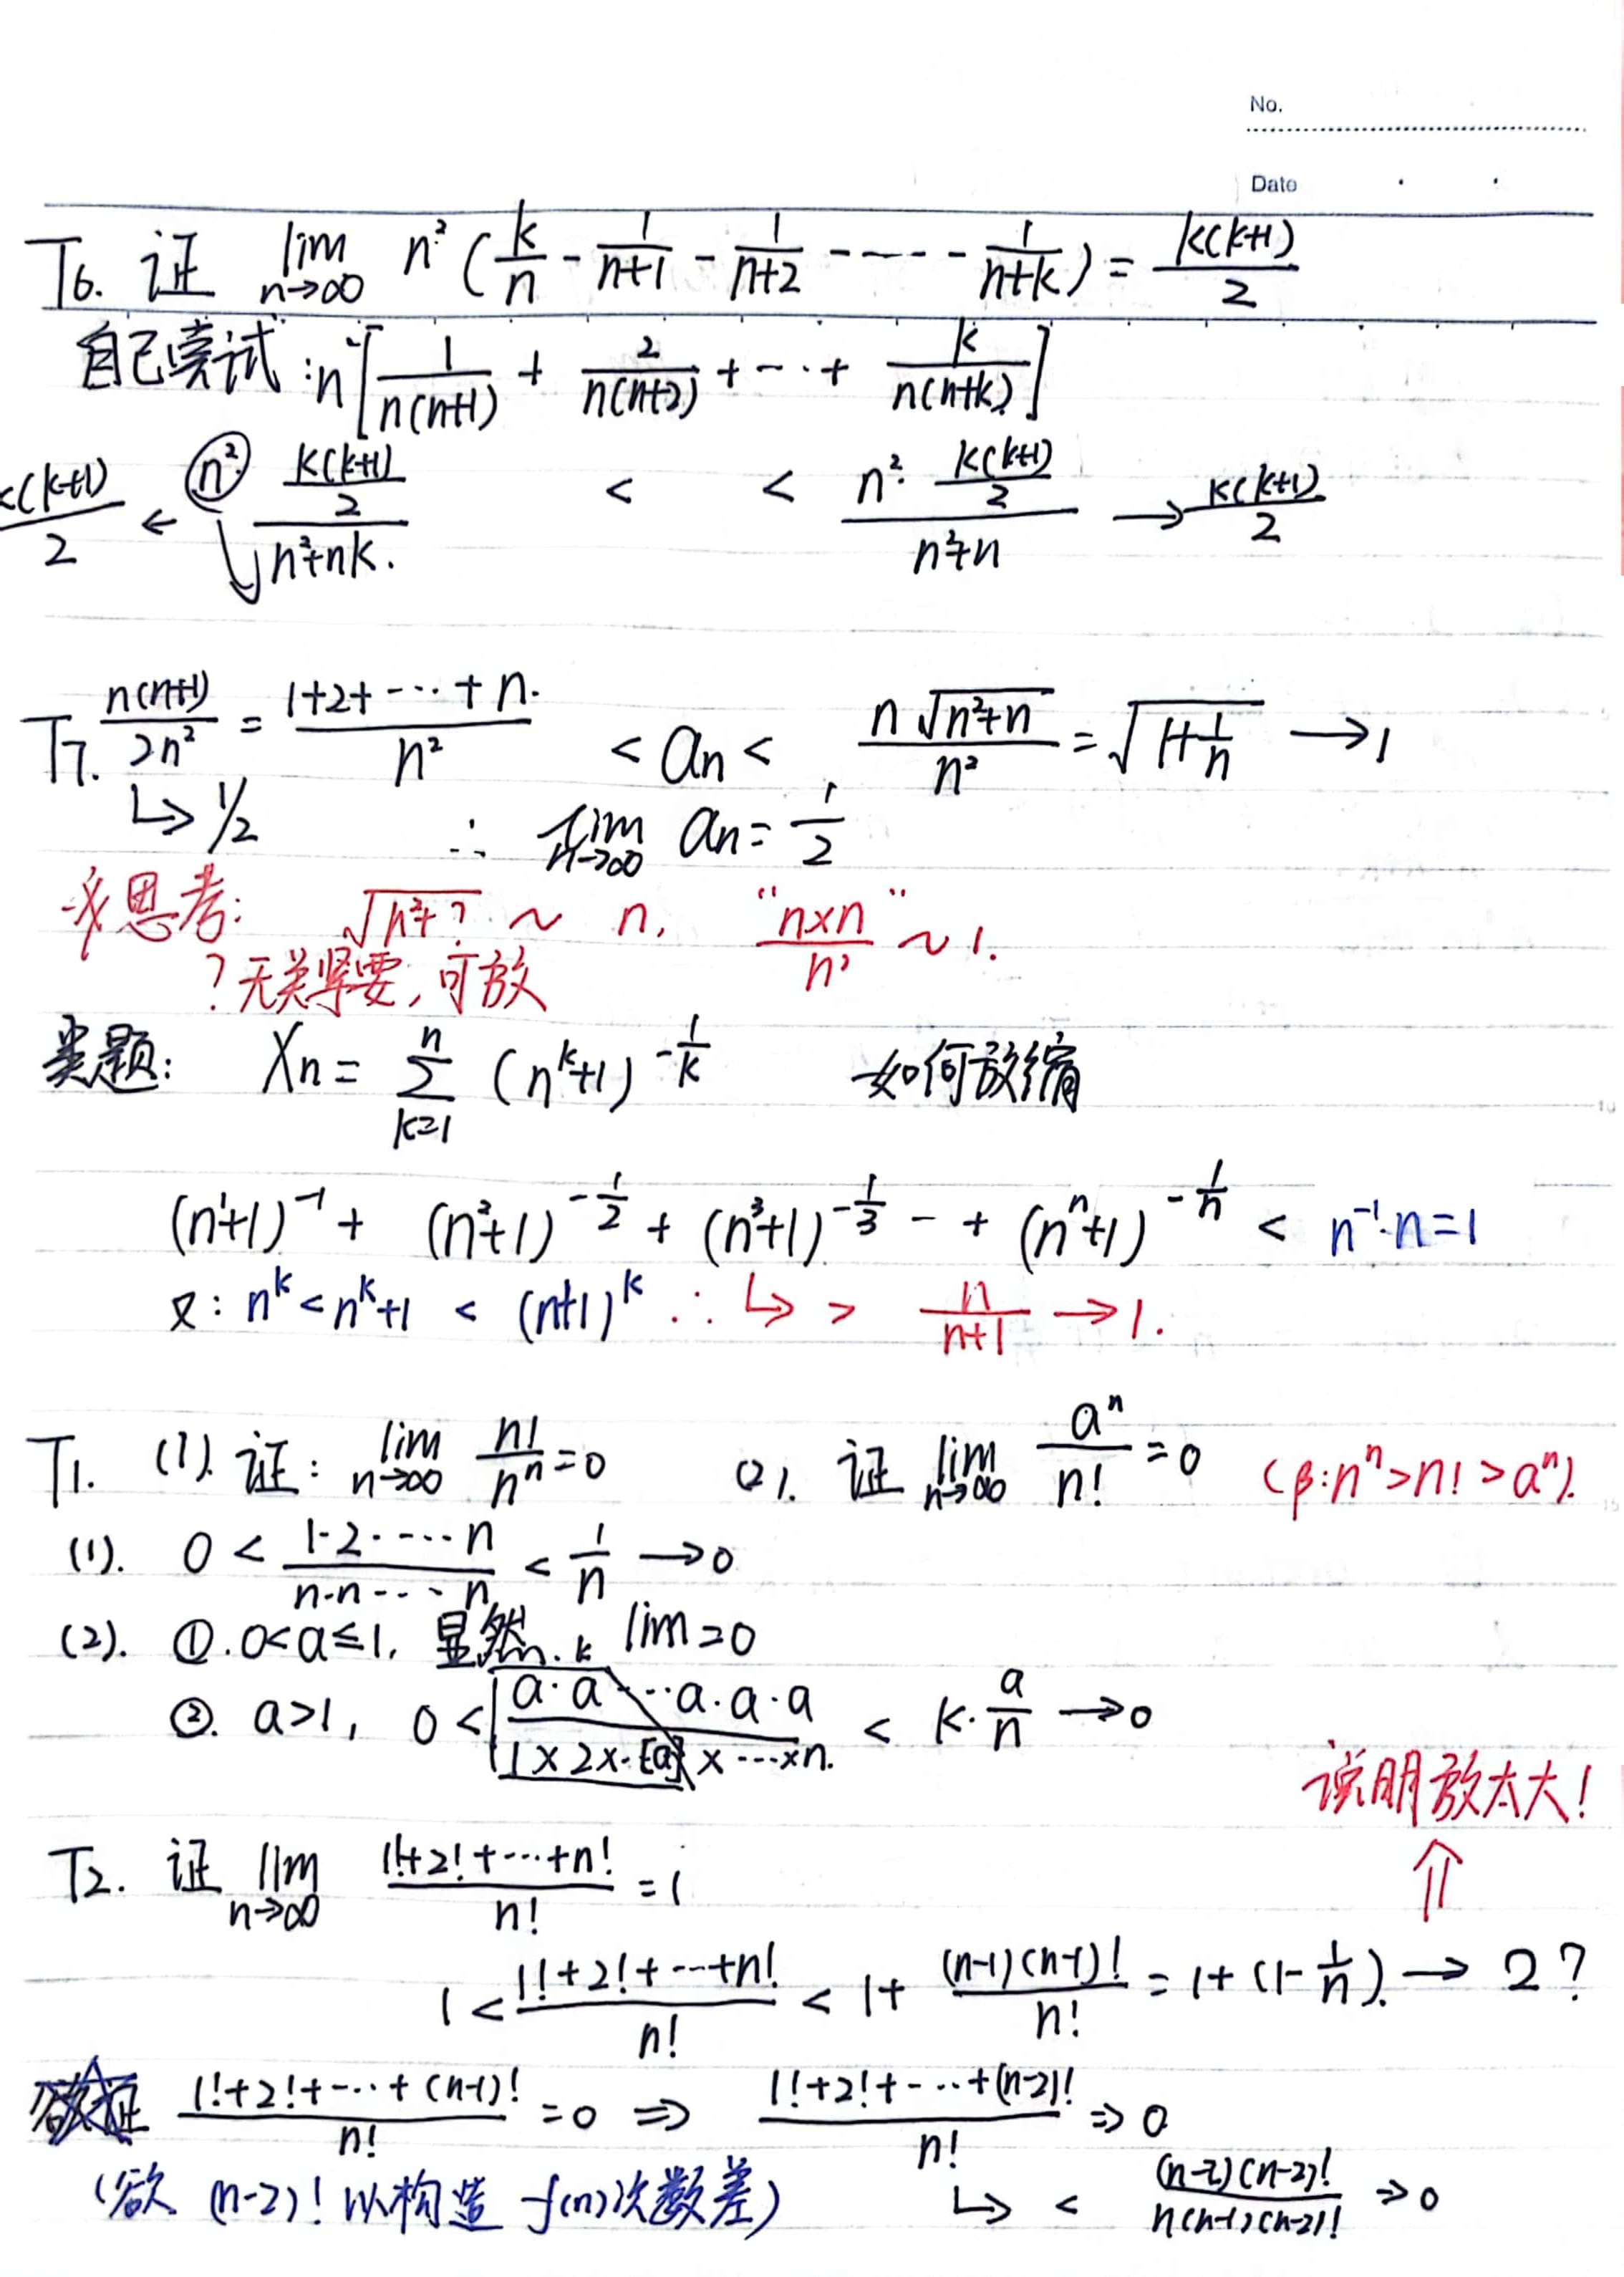 No.
Date
T6. 证 lim n→∞ n² (k/n - 1/(n+1) - 1/(n+2) - ---- - 1/(n+k)) = k(k+1)/2
自己尝试: n²[1/(n(n+1)) + 2/(n(n+2)) + -·· + k/(n(n+k))]
k(k+1)/2 ← n²· (k(k+1)/2)/(n²+nk) < < (n²· k(k+1)/2)/(n²+n) → k(k+1)/2
T7. n(n+1)/2n² = (1+2+···+n)/n² < an < n√(n²+n)/n² = √(1+1/n) → 1
↳ 1/2 ∴ lim n→∞ an = 1/2
思考: √(n²+?) ~ n, "n×n"/n² ~ 1.
? 无关紧要, 可放
类题: Xn = Σ k=1 n (n^k+1)^(-1/k) 如何放缩
(n¹+1)^-1 + (n²+1)^(-1/2) + (n³+1)^(-1/3) - + (n^n+1)^(-1/n) < n^-1·n=1
又: n^k < n^k+1 < (n+1)^k ∴ ↳ > n/(n+1) → 1.
T1. (1). 证: lim n→∞ n!/n^n = 0 (2). 证 lim n→∞ a^n/n! = 0 (β: n^n > n! > a^n).
(1). 0 < 1·2·-···n/n·n-··-n < 1/n → 0
(2). ①. 0<a≤1, 显然 lim=0
k
②. a>1, 0 < a·a···a·a·a/1×2×·[a]×···×n. < k·a/n → 0
说明放太大!
⇑
T2. 证 lim n→∞ (1!+2!+···+n!)/n! = 1
1 < (1!+2!+···+n!)/n! < 1+ (n-1)(n-1)!/n! = 1+(1-1/n). → 2?
欲证 (1!+2!+-··+(n-1)!)/n! = 0 ⇒ (1!+2!+-··+(n-2)!)/n! ⇒ 0
(欲 (n-2)! 以构造 f(n)次数差) ↳ < (n-2)(n-2)!/n(n-1)(n-2)! ⇒ 0